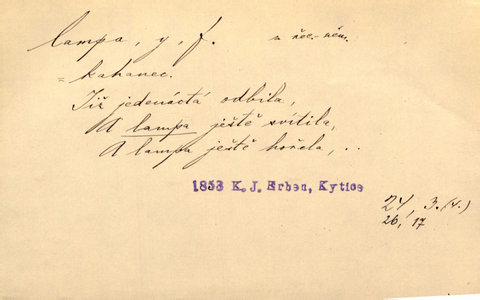 lampa, y, f. z řec.-něm.
= kahanec.
Již jedenáctá odbila,
A lampa ještě svítila,
A lampa ještě hořela, ..
1853 K. J. Erben, Kytice
24, 3. (4.)
26, 17